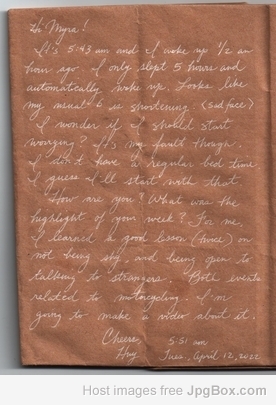 Hi Myra!
It's 5:43 am and I woke up 1/2 an
hour ago. I only slept 5 hours and
automatically woke up. Looks like
my usual 6 is shortening (sad face)
I wonder if I should start
worrying? It's my fault though.
I don't have a regular bed time
I guess I'll start with that.
How are you? What was the
highlight of your week? For me
I learned a good lesson (twice) on
not being shy and being open to
talking to strangers. Both events
related to motorcycling. I'm
going to make a video about it.
Cheers, 5:51 am
Huy Tues, April 12, 2022
Host images free JpgBox.com